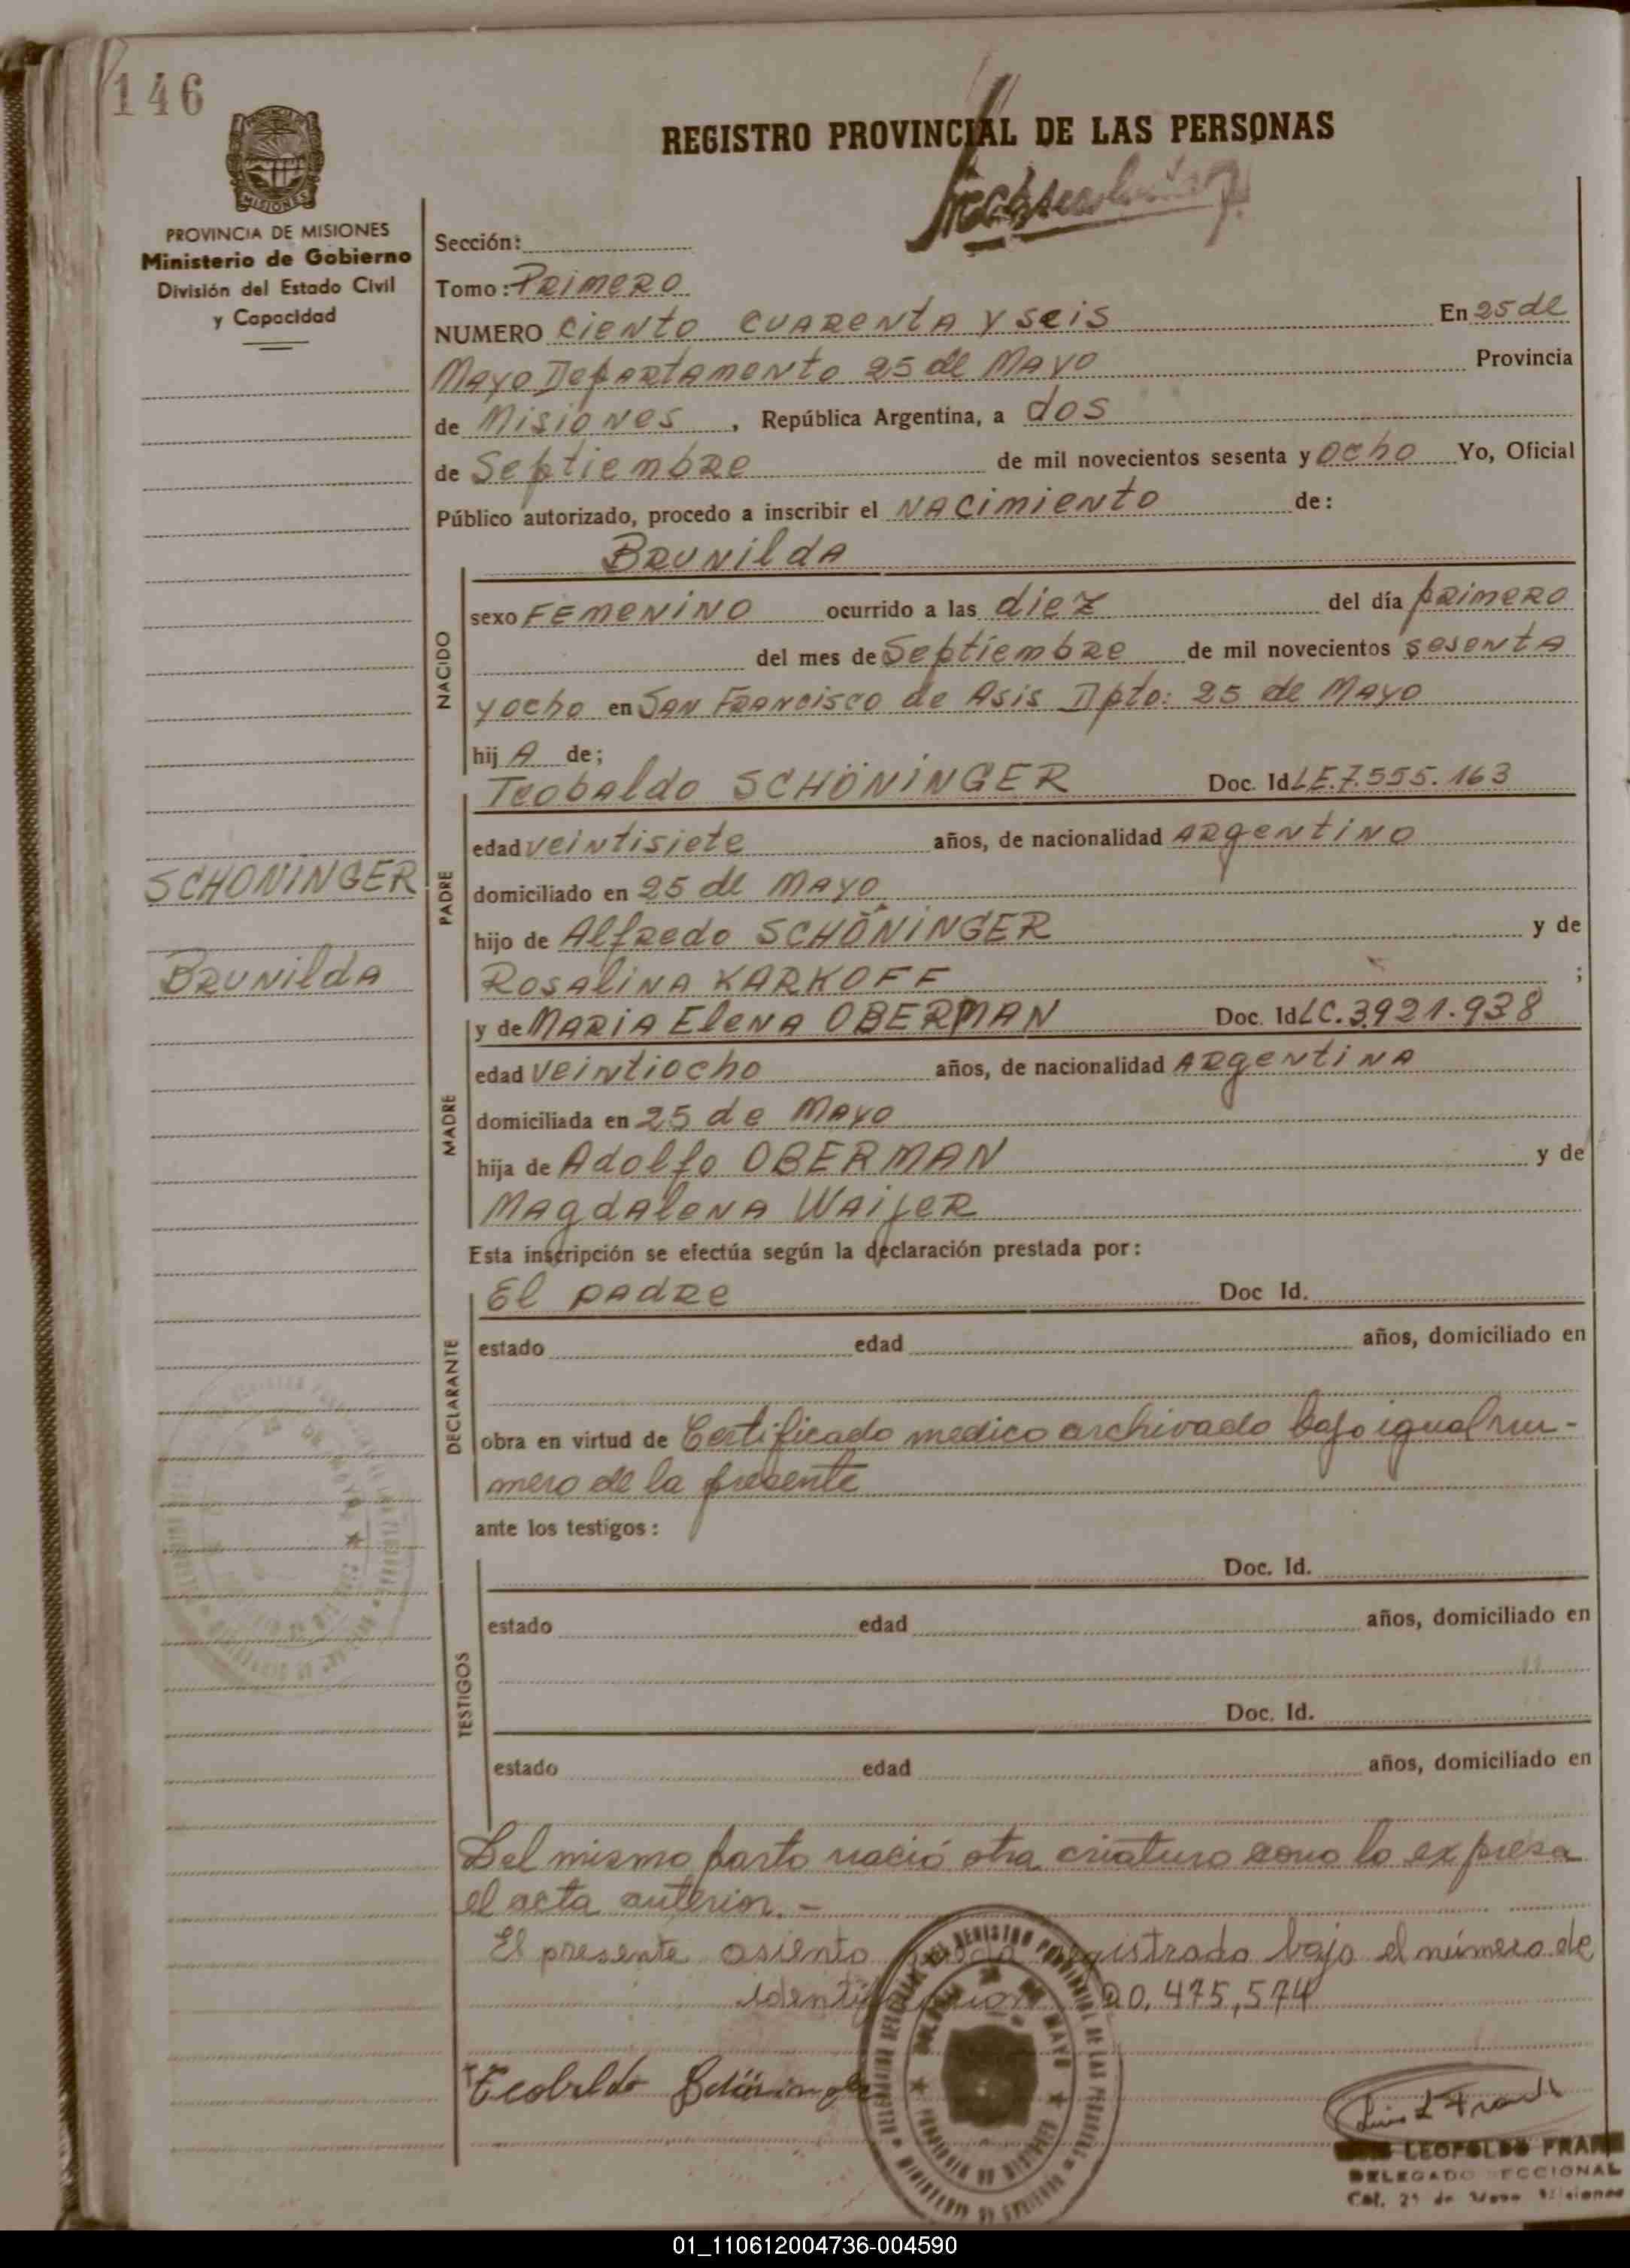 146
REGISTRO PROVINCIAL DE LAS PERSONAS
MISIONES
PROVINCIA DE MISIONES
Ministerio de Gobierno
División del Estado Civil
y Capacidad
Sección:
Tomo: Primero
NUMERO Ciento cuarenta y seis En 25 de
Mayo Departamento 25 de Mayo Provincia
de Misiones, República Argentina, a dos
de Septiembre de mil novecientos sesenta y ocho Yo, Oficial
Público autorizado, procedo a inscribir el Nacimiento de:
Brunilda
NACIDO
sexo Femenino ocurrido a las diez del día primero
del mes de Septiembre de mil novecientos sesenta
y ocho en San Francisco de Asis Dpto: 25 de Mayo
hija de;
PADRE
Teobaldo SCHÖNINGER Doc. Id LE.7.555.163
edad veintisiete años, de nacionalidad Argentino
domiciliado en 25 de Mayo
hijo de Alfredo SCHÖNINGER y de
Rosalina KARKOFF ;
SCHONINGER
Brunilda
MADRE
y de Maria Elena OBERMAN Doc. Id LC.3.921.938
edad veintiocho años, de nacionalidad Argentina
domiciliada en 25 de Mayo
hija de Adolfo OBERMAN y de
Magdalena
Esta inscripción se efectúa según la declaración prestada por:
DECLARANTE
El padre Doc Id.
estado edad años, domiciliado en
obra en virtud de Certificado medico archivado bajo igual nu-
mero de la presente
ante los testigos:
TESTIGOS
Doc. Id.
estado edad años, domiciliado en
Doc. Id.
estado edad años, domiciliado en
Del mismo parto nació otra criatura como lo expresa
el acta anterior.-
El presente asiento registrado bajo el número de
identificación 20.475,574
Teobaldo Schöninger
LEOPOLDO
DELEGADO
01_110612004736-004590